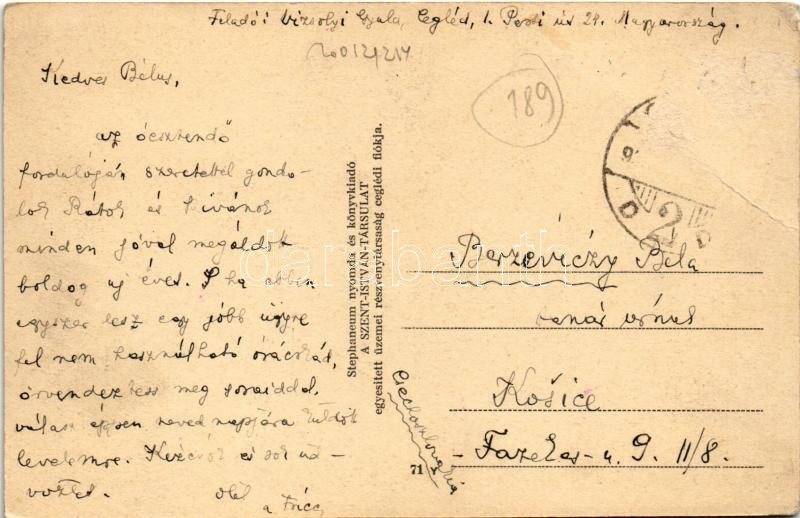 Feladó: Vizsolyi Gyula, Cegléd, I. Pesti út 24. Magyarország.
Kedves Bélus,
az óesztendő
fordulóján szeretettel gondo-
lok Rátok és kívánok
minden jóval megáldott
boldog uj évet. S ha ebben
egyszer lesz egy jobb ügyre
fel nem használható órácskád,
örvendeztess meg soraiddal.
válasz éppen neved napjára küldött
levelemre. Kézcsók és sok üd-
vözlet.
ölel
a
189
Stephaneum nyomda és könyvkiadó
A SZENT-ISTVÁN-TÁRSULAT
egyesített üzemei részvénytársaság ceglédi fiókja.
71
D 2 D
Berzeviczy Béla
tanár úrnak
Košice
Fazekas-u. 9. II/8.
Csechoslovakia
darabanth